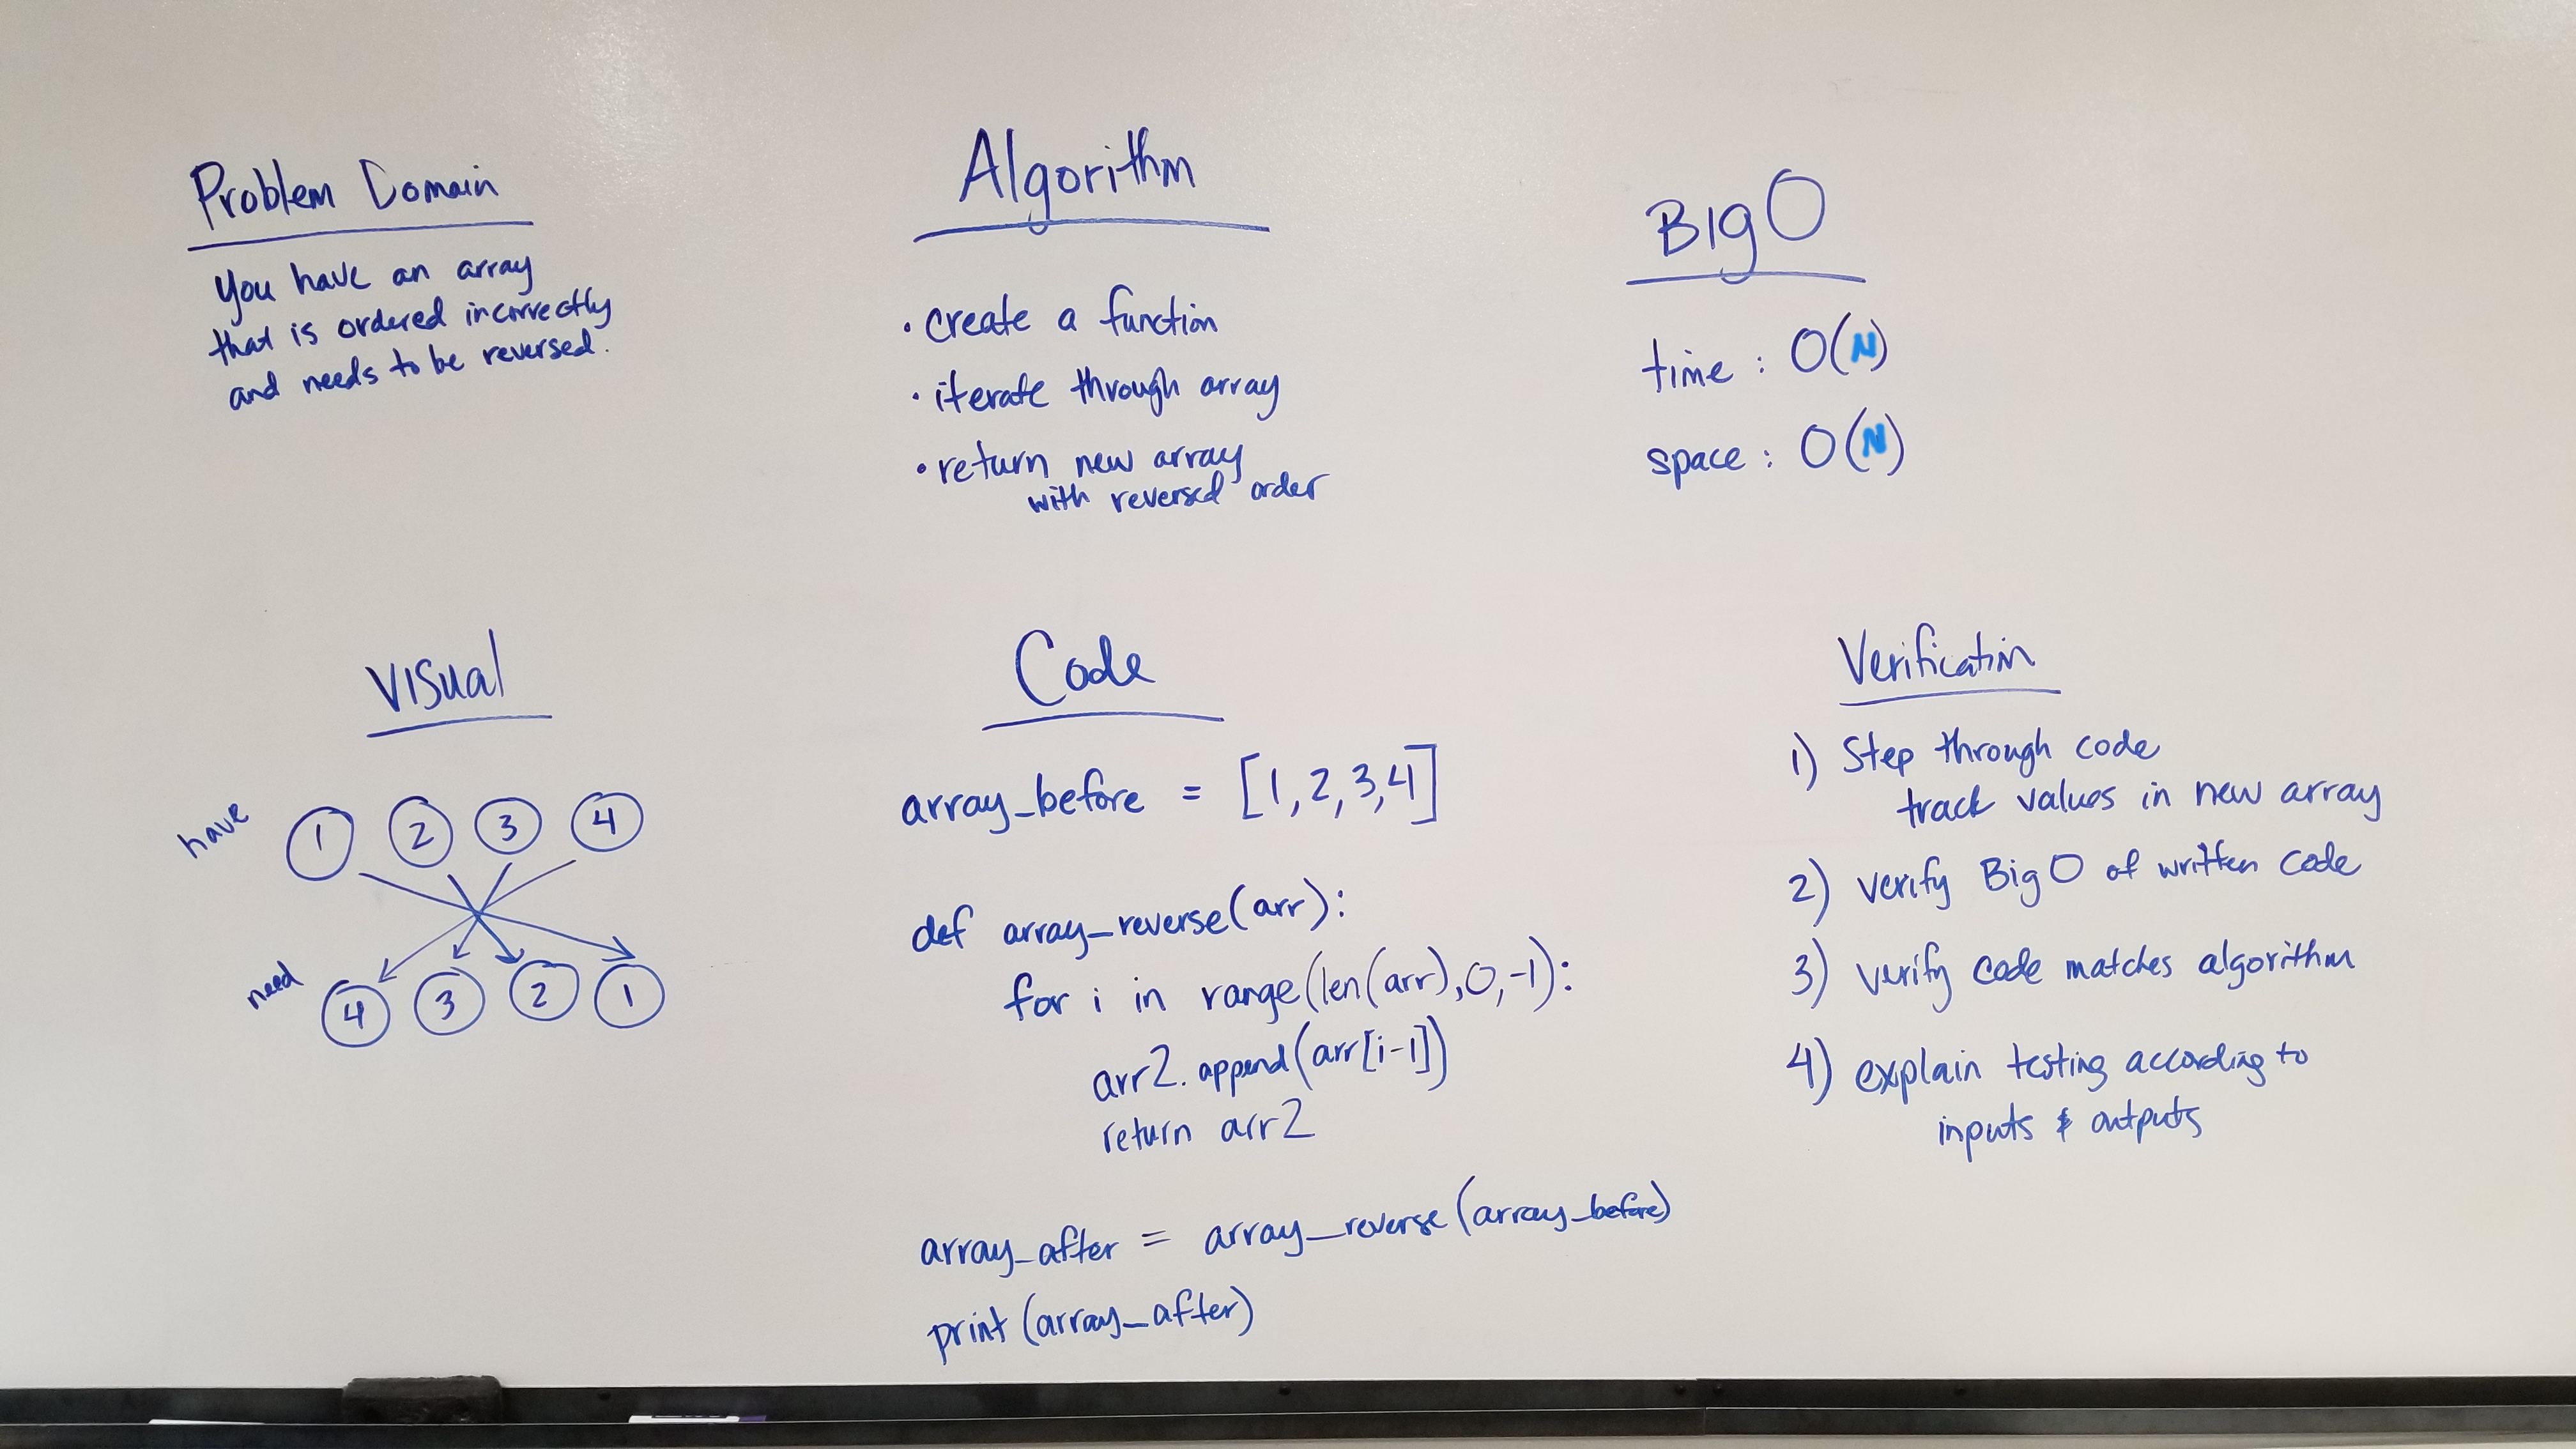 Problem Domain
You have an array
that is ordered incorrectly
and needs to be reversed.
Algorithm
• create a function
• iterate through array
• return new array
with reversed order
Big O
time : O(N)
space : O(N)
Visual
have
1 2 3 4
need
4 3 2 1
Code
array_before = [1,2,3,4]
def array_reverse(arr):
for i in range(len(arr),0,-1):
arr2.append(arr[i-1])
return arr2
array_after = array_reverse(array_before)
print(array_after)
Verification
1) Step through code
track values in new array
2) verify Big O of written code
3) verify code matches algorithm
4) explain testing according to
inputs & outputs